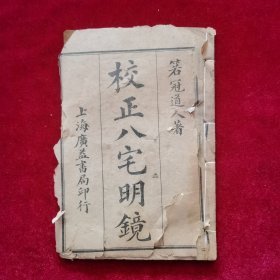 箬冠道人著
校正八宅明鏡
上海廣益書局印行